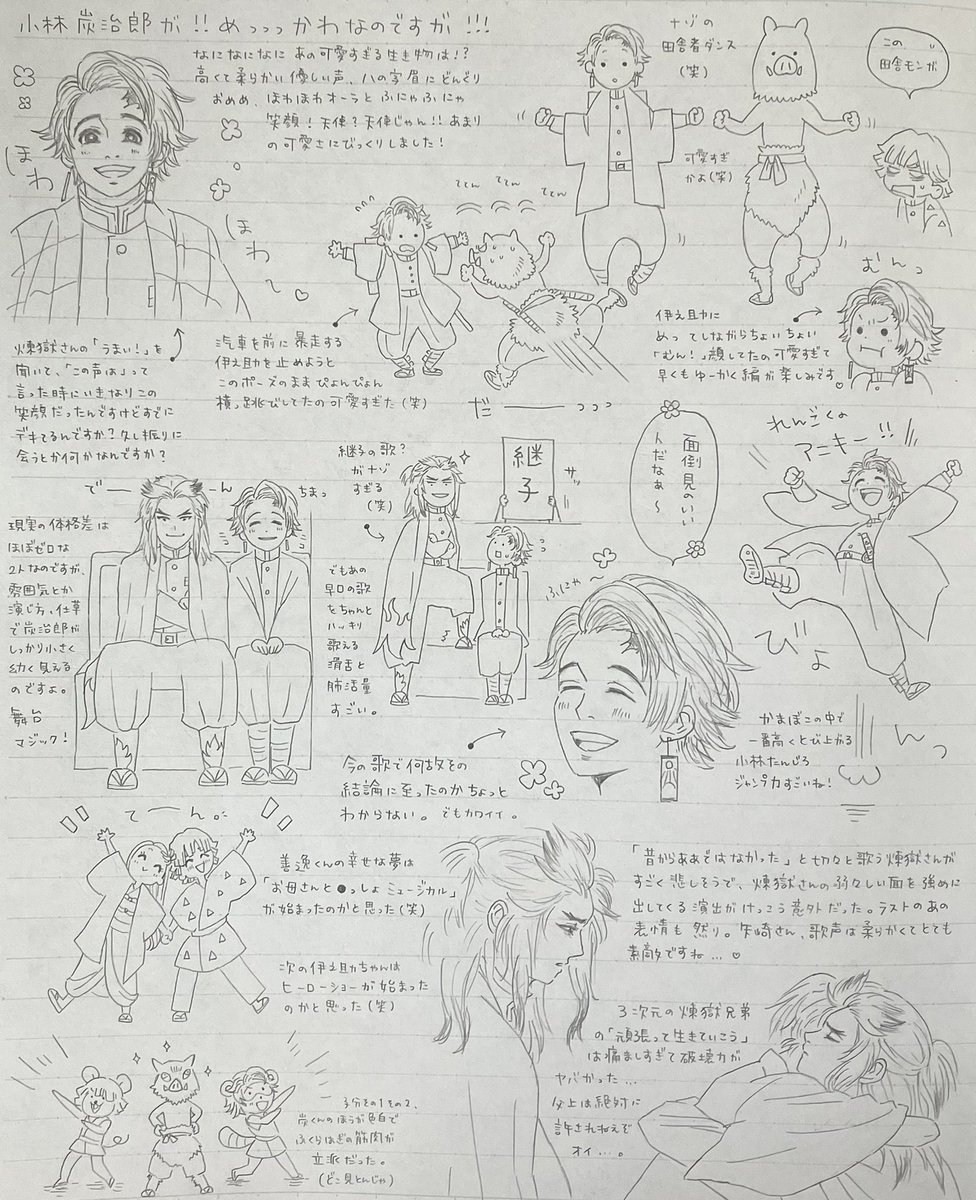 小林炭治郎が!!めっっっかわなのですが!!!
なになになに あの可愛すぎる生き物は!?
高くて柔らかい優しい声、ハの字眉にどんぐり
おめめ、ほわほわオーラとふにゃふにゃ
笑顔!天使?天使じゃん!!あまり
の可愛さにびっくりしました!
ほわ
ほわ〜
ナゾの
田舎者ダンス
(笑)
可愛すぎ
かよ(笑)
この
田舎モンが
ててん ててん ててん
汽車を前に暴走する
伊之助を止めようと
このポーズのままぴょんぴょん
横っ跳びしてたの可愛すぎた(笑)
だーーーっっっ
むんっ
伊之助に
めってしながらちょいちょい
「むん!」顔してたの可愛すぎて
早くもゆーかく編が楽しみです
煉獄さんの「うまい!」を
聞いて、「この声は」って
言った時にいきなりこの
笑顔だったんですけどすでに
デキてるんですか?久し振りに
会うとか何かなんですか?
でーーん
ちまっ
現実の体格差は
ほぼゼロな
2人なのですが、
雰囲気とか
演じ方、仕草
で炭治郎が
しっかり小さく
幼く見える
のですよ。
舞台
マジック!
継子の歌?
がナゾ
すぎる
(笑)
継子
サッ
でもあの
早口の歌
をちゃんと
ハッキリ
歌える
滑舌と
肺活量
すごい。
面倒見のいい
人だなぁ〜
ふにゃ〜
今の歌で何故その
結論に至ったのかちょっと
わからない。でもカワイイ。
れんごくの
アニキー!!
びょ
んっ
かまぼこの中で
一番高くとび上がる
小林たんじろ
ジャンプ力すごいね!
てーん。
善逸くんの幸せな夢は
「お母さんと●っしょミュージカル」
が始まったのかと思った(笑)
次の伊之助ちゃんは
ヒーローショーが始まった
のかと思った(笑)
子分その1その2、
炭くんのほうが色白で
ふくらはぎの筋肉が
立派だった。
(どこ見とんじゃ)
「昔からああではなかった」と切々と歌う煉獄さんが
すごく悲しそうで、煉獄さんの弱々しい面を強めに
出してくる演出がけっこう意外だった。ラストのあの
表情も然り。矢崎さん、歌声は柔らかくてとても
素敵ですね…
3次元の煉獄兄弟
の「頑張って生きていこう」
は痛ましすぎて破壊力が
ヤバかった…
父上は絶対に
許されねえぞ
オイ…。